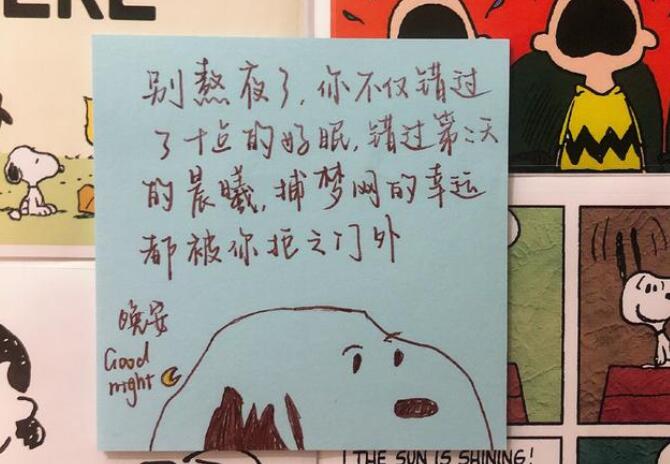 ERE
别熬夜了,你不仅错过
了十点的好眠,错过第二天
的晨曦,捕梦网的幸运
都被你拒之门外
晚安
Good
night
THE SUN IS SHINING!